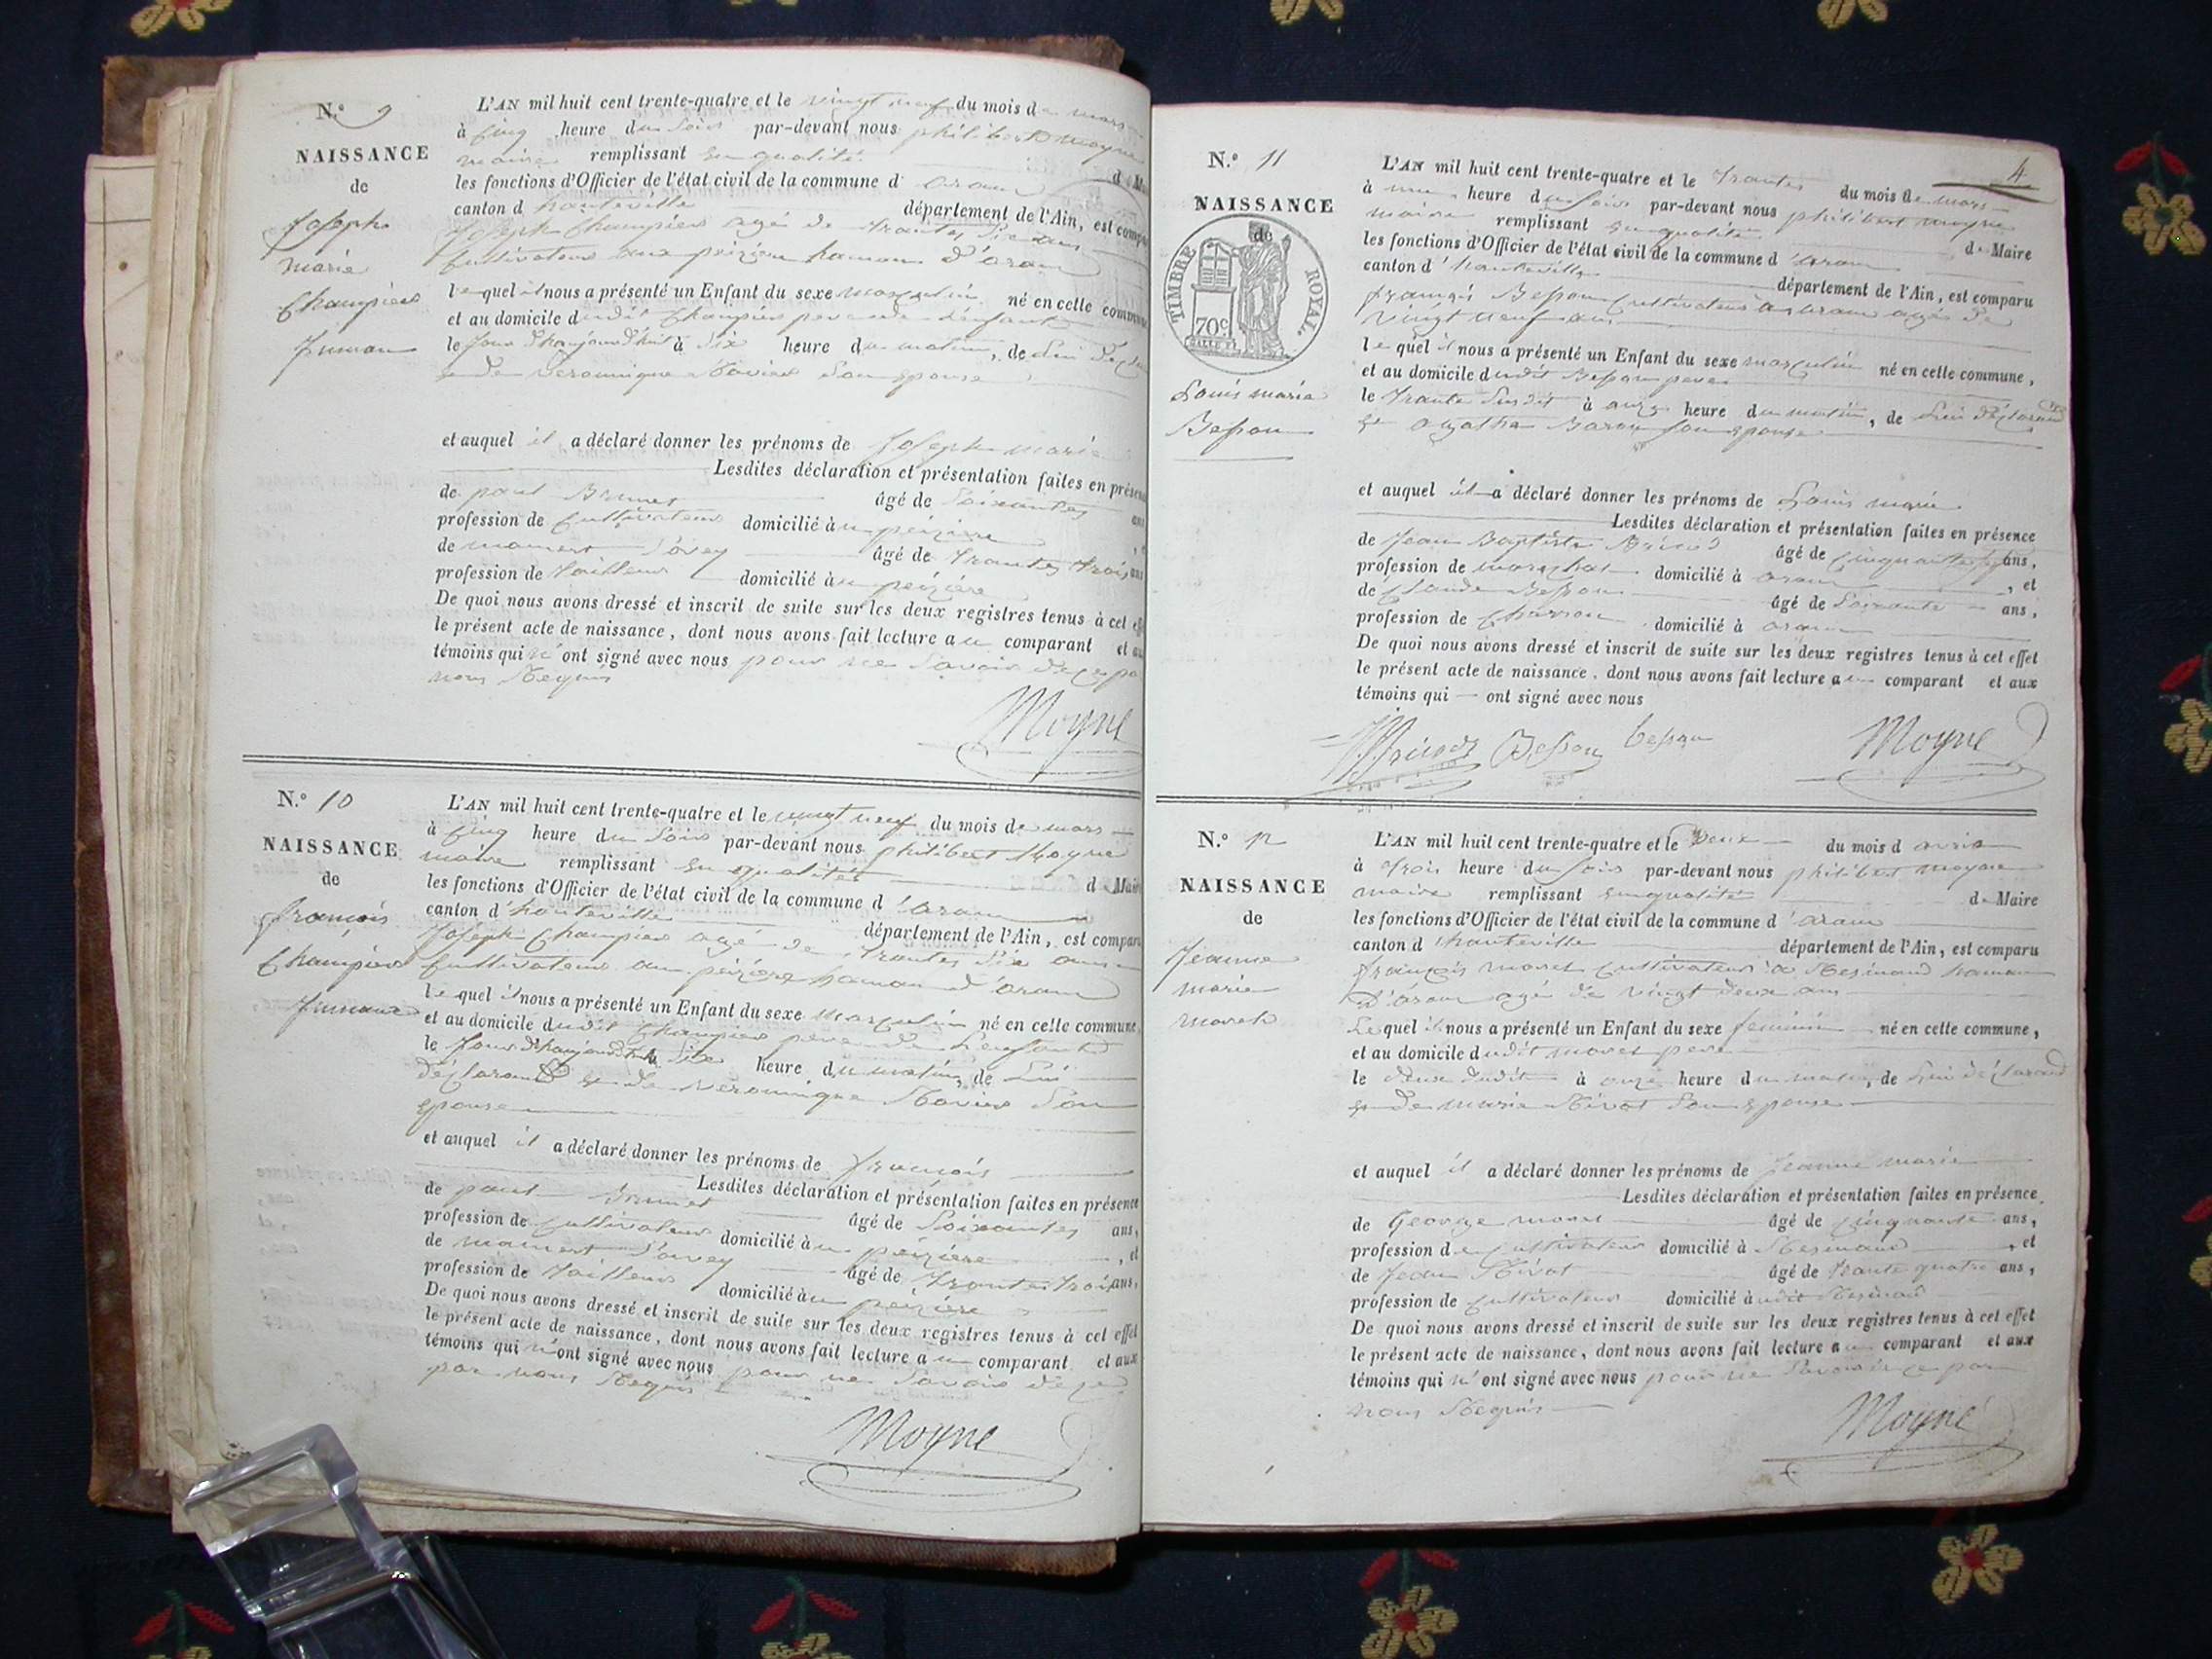 N.° 9
NAISSANCE
de
Joseph
marie
Champier
Jumau
L'AN mil huit cent trente-quatre et le vingt neuf du mois de mars
à cinq heure du soir par-devant nous philibert moyne
maire remplissant en qualité d Mai
les fonctions d'Officier de l'état civil de la commune d' aranc
canton d hauteville département de l'Ain, est compa
Joseph Champier agé de trantes six ans
Cultivateur aux peizieu hamau d'aranc
lequel il nous a présenté un Enfant du sexe masculin né en cette commune
et au domicile dudit Champier pere de l'enfant
le jour d'haujourd'huit à six heure du matin, de lui
e de veronnique Savier son epouse
et auquel il a déclaré donner les prénoms de Joseph marie
Lesdites déclaration et présentation faites en présen
de paul Brunet âgé de Soixantes ans
profession de Cultivateur domicilié à peizière
de mamert Savey âgé de trantes trois ans
profession de tailleur domicilié à peizière
De quoi nous avons dressé et inscrit de suite sur les deux registres tenus à cet effet
le présent acte de naissance, dont nous avons fait lecture au comparant et au
témoins qui n'ont signé avec nous pour ne savoir de ce
nous Requis
Moyne
N.° 10
NAISSANCE
de
françois
Champier
Jumaux
L'AN mil huit cent trente-quatre et le vingt neuf du mois de mars
à cinq heure du soir par-devant nous philibert Moyne
maire remplissant en qualités de Maire
les fonctions d'Officier de l'état civil de la commune d'aranc
canton d'hauteville département de l'Ain, est comparu
Joseph Champier agé de trantes six ans
Cultivateur au peizière hamau d'aranc
lequel il nous a présenté un Enfant du sexe Masculin né en cette commune
et au domicile dudit Champier pere de l'enfant
le jour d'haujourd'huit à six heure du matin, de Lui
déclarant e de veronnique Savier son
epouse
et auquel il a déclaré donner les prénoms de françois
Lesdites déclaration et présentation faites en présence
de paul Brunet âgé de Soixantes ans,
profession de Cultivateur domicilié à peizière, et
de mamert Savey âgé de trantes trois ans,
profession de tailleur domicilié à peizière
De quoi nous avons dressé et inscrit de suite sur les deux registres tenus à cet effet
le présent acte de naissance, dont nous avons fait lecture au comparant et aux
témoins qui n'ont signé avec nous pour ne savoir de ce
par nous Requis
Moyne
4
N.° 11
NAISSANCE
de
TIMBRE ROYAL.
70c
Louis marie
Besson
L'AN mil huit cent trente-quatre et le trantes du mois de mars
à une heure du soir par-devant nous philibert moyne
maire remplissant en qualité de Maire
les fonctions d'Officier de l'état civil de la commune d'aranc
canton d'hauteville département de l'Ain, est comparu
françois Besson Cultivateur à aranc agé de
vingt neuf ans
lequel il nous a présenté un Enfant du sexe masculin né en cette commune,
et au domicile dudit Besson pere
le trante susdit à onze heure du matin, de Lui déclarant
e agatha Baron son epouse
et auquel il a déclaré donner les prénoms de Louis marie
Lesdites déclaration et présentation faites en présence
de Jean Baptiste âgé de cinquante ans,
profession de marechal domicilié à aranc, et
de Claude Besson âgé de Soixante ans,
profession de Charron domicilié à aranc
De quoi nous avons dressé et inscrit de suite sur les deux registres tenus à cet effet
le présent acte de naissance, dont nous avons fait lecture au comparant et aux
témoins qui ont signé avec nous
Besson besson Moyne
N.° 12
NAISSANCE
de
Jeanne
marie
moret
L'AN mil huit cent trente-quatre et le Deux du mois d avril
à trois heure du soir par-devant nous philibert moyne
maire remplissant en qualité de Maire
les fonctions d'Officier de l'état civil de la commune d'aranc
canton d'hauteville département de l'Ain, est comparu
françois moret Cultivateur à Resinand hamau
D'aranc agé de vingt deux ans
Lequel il nous a présenté un Enfant du sexe feminin né en cette commune,
et au domicile dudit moret pere
le deux dudit à onze heure du matin, de Lui déclarant
e de marie Rivot son epouse
et auquel il a déclaré donner les prénoms de jeanne marie
Lesdites déclaration et présentation faites en présence
de George moret âgé de cinquante ans,
profession de Cultivateur domicilié à Resinand, et
de Jean Rivot âgé de trante quatre ans,
profession de cultivateur domicilié audit Resinand
De quoi nous avons dressé et inscrit de suite sur les deux registres tenus à cet effet
le présent acte de naissance, dont nous avons fait lecture au comparant et aux
témoins qui n'ont signé avec nous pour ne savoir de ce par
nous Requis
Moyne